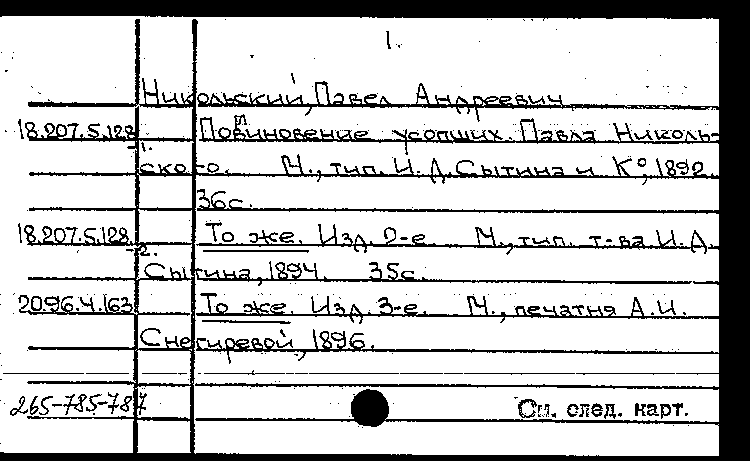 1.
Никольский, Павел Андреевич
18.207.5.128 Поминовение усопших. Павла Николь-
-1.
ского. М., тип. И. Д. Сытина и К°, 1892.
36с.
18.207.5.128 То же. Изд 2-е. М., тип. т-ва И.Д.
-2.
Сытина, 1894. 35с.
2096.4.163 То же. Изд. 3-е. М., печатня А.И.
Снегиревой, 1896.
265-785-787 См. след. карт.